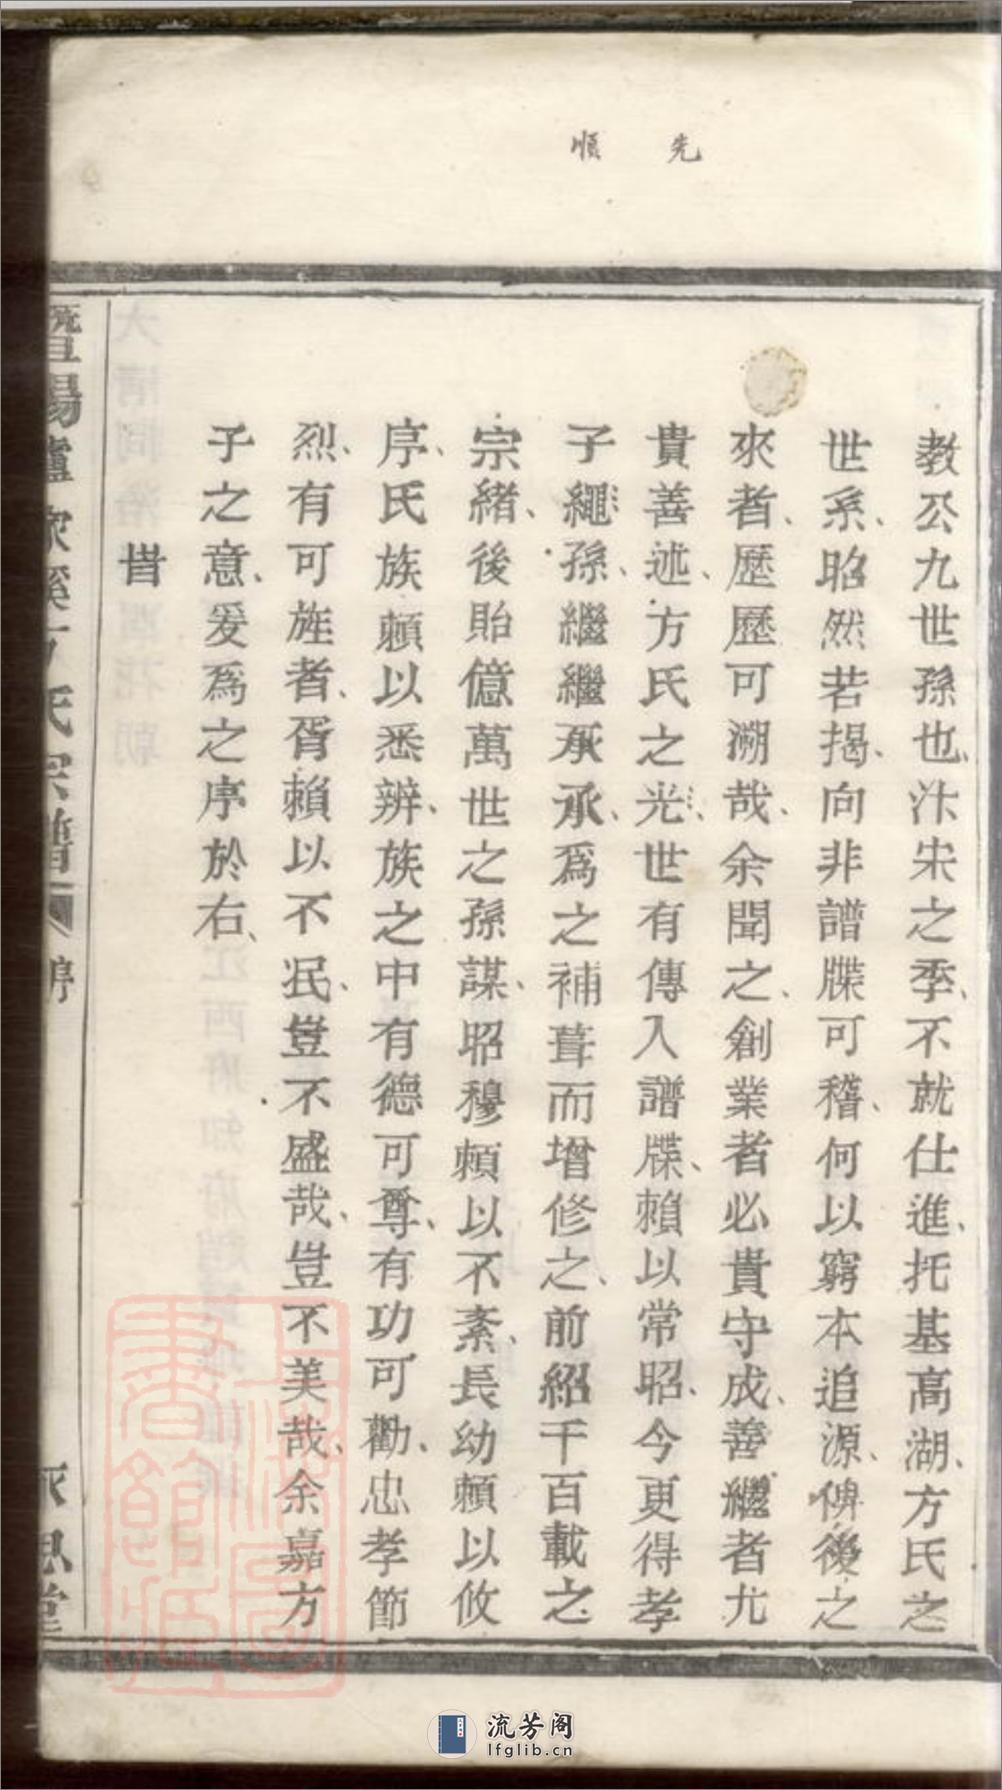 先
順
教公九世孫也汴宋之季不就仕進托基高湖方氏之
世系昭然若揭向非譜牒可稽何以窮本追源俾後之
來者歷歷可溯哉余聞之創業者必貴守成善繼者尤
貴善述方氏之光世有傳入譜牒賴以常昭今更得孝
子繩孫繼繼承承爲之補葺而增修之前紹千百載之
宗緒後貽億萬世之孫謀昭穆賴以不紊長幼賴以攸
序氏族賴以悉辨族之中有德可尊有功可勸忠孝節
烈有可旌者胥賴以不泯豈不盛哉豈不美哉余嘉方
子之意爰爲之序於右
旹
暨陽 氏宗譜 序 思堂
上海圖書館藏
流芳阁
lfglib.cn